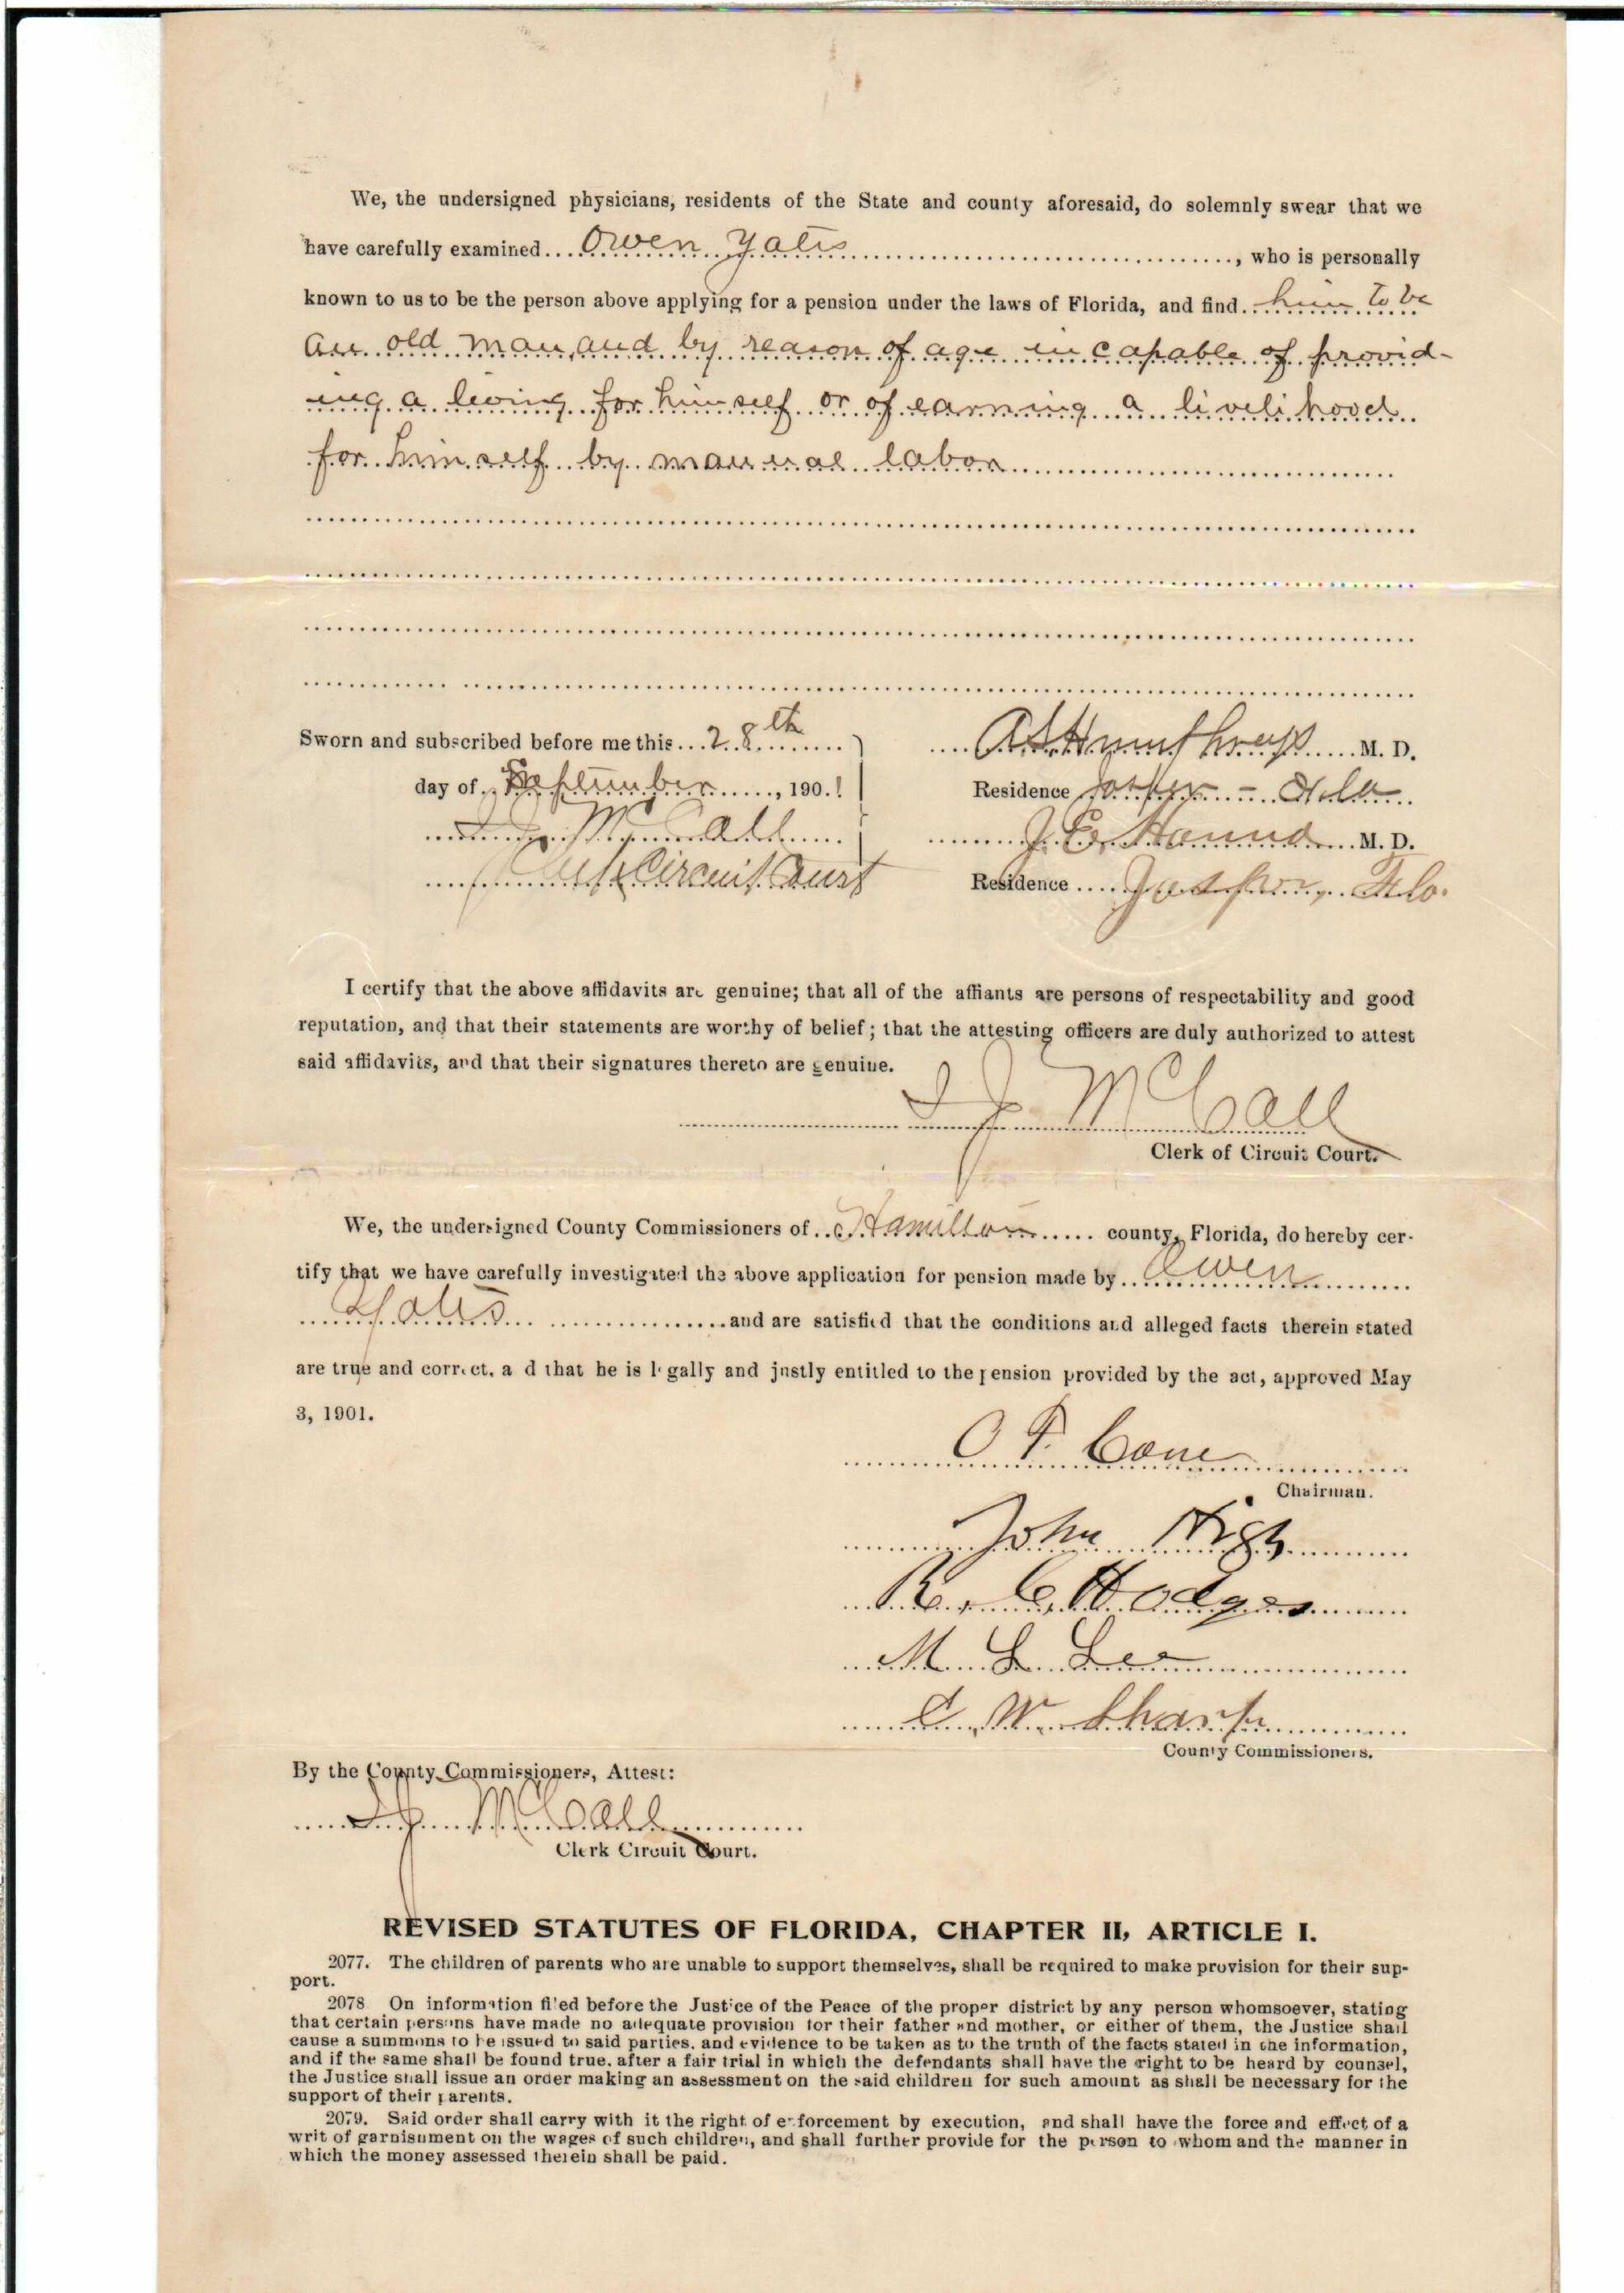 We, the undersigned physicians, residents of the State and county aforesaid, do solemnly swear that we
have carefully examined Owen Yates, who is personally
known to us to be the person above applying for a pension under the laws of Florida, and find him to be
an old man, and by reason of age incapable of provid-
ing a living for himself or of earning a livelihood
for himself by manual labor
Sworn and subscribed before me this 28th
day of September, 1901
McCall
Clerk Circuit Court
M. D.
Residence Jasper - Fla
J. E. Hanna M. D.
Residence Jasper, Fla.
I certify that the above affidavits are genuine; that all of the affiants are persons of respectability and good
reputation, and that their statements are worthy of belief; that the attesting officers are duly authorized to attest
said affidavits, and that their signatures thereto are genuine.
McCall
Clerk of Circuit Court.
We, the undersigned County Commissioners of Hamilton county, Florida, do hereby cer-
tify that we have carefully investigated the above application for pension made by Owen
Yates and are satisfied that the conditions and alleged facts therein stated
are true and correct, and that he is legally and justly entitled to the pension provided by the act, approved May
3, 1901.
Cone
Chairman.
John High
R. C. Hodges
M. L. Lee
C. W. Sharp
County Commissioners.
By the County Commissioners, Attest:
McCall
Clerk Circuit Court.
REVISED STATUTES OF FLORIDA, CHAPTER II, ARTICLE I.
2077. The children of parents who are unable to support themselves, shall be required to make provision for their sup-
port.
2078 On information filed before the Justice of the Peace of the proper district by any person whomsoever, stating
that certain persons have made no adequate provision for their father and mother, or either of them, the Justice shall
cause a summons to be issued to said parties, and evidence to be taken as to the truth of the facts stated in the information,
and if the same shall be found true, after a fair trial in which the defendants shall have the right to be heard by counsel,
the Justice shall issue an order making an assessment on the said children for such amount as shall be necessary for the
support of their parents.
2079. Said order shall carry with it the right of enforcement by execution, and shall have the force and effect of a
writ of garnishment on the wages of such children, and shall further provide for the person to whom and the manner in
which the money assessed therein shall be paid.